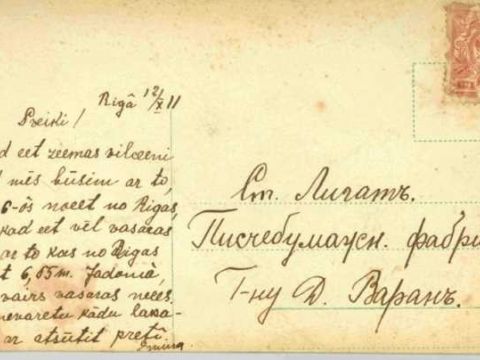 Rīgā 12/X 11
Sveiki!
d eet zeemas vilceeni
mēs būsim ar to,
6-ōs noeet no Rīgas,
kad eet vēl vasaras
ar to kas no Rīgas
t 6,05 m. Jadomā,
vairs vasaras neees.
nevaretu kādu laxa-
ar atsūtit pretī.
Ст. Лигатъ.
Писчебумажн. фабри
Г-ну Д. Варанъ.